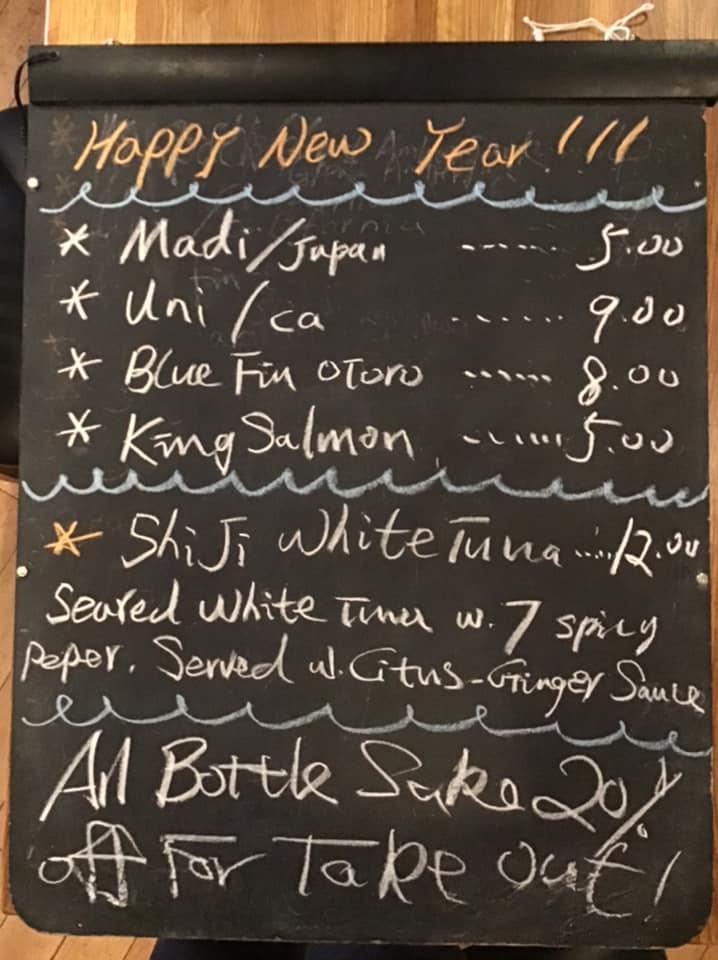 Happy New Year!!!
* Madi/Japan ...... 5.00
* Uni/ca ....... 9.00
* Blue Fin OToro ...... 8.00
* King Salmon ....... 5.00
* ShiJi White Tuna ..... 12.00
Seared White Tuna w. 7 spicy
Peper. Served w. Citus-Ginger Sauce
All Bottle Sake 20%
off For Take out!